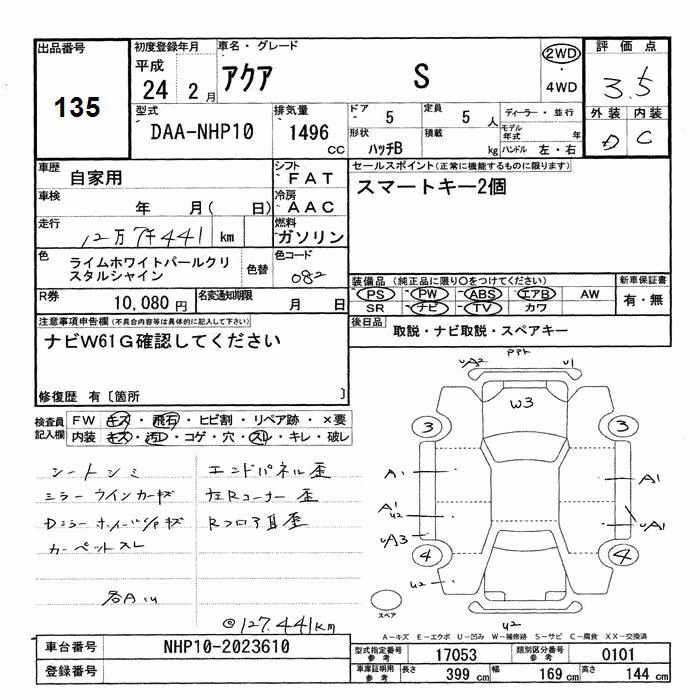 出品番号
135
初度登録年月
平成
24 2月
車名・グレード
アクア S
2WD
・
4WD
評価点
3.5
外装 内装
D C
型式
DAA-NHP10
排気量
1496 CC
ドア 5
形状 ハッチB
定員 5 人
積載 kg
ディーラー・並行
モデル年式 年
ハンドル 左・右
車歴 自家用
シフト F A T
車検 年 月( 日)
冷房 A A C
走行 12万7千441 km
燃料 ガソリン
色 ライムホワイトパールクリスタルシャイン 色替
色コード 082
R券 10,080 円
名変通知期限 月 日
セールスポイント(正常に機能するものに限ります)
スマートキー2個
装備品(純正品に限り○をつけてください)
PS ・ PW ・ ABS ・ エアB AW
SR ・ ナビ ・ TV ・ カワ
新車保証書
有・無
後日品 取説・ナビ取説・スペアキー
注意事項申告欄(不具合内容等は具体的に記入して下さい)
ナビW61G確認してください
修復歴 有〔箇所 〕
検査員記入欄
FW キズ・飛石・ヒビ割・リペア跡・×要
内装 キズ・汚レ・コゲ・穴・スレ・キレ・破レ
シートシミ
ミラーウインカーキズ
Dミラーホイール
カーペットスレ
エンドパネル歪
左Rコーナー歪
Rフロア
各A.u
@127.441KM
uA2
u1
W3
3
3
A1
A1
A1
u2
uA1
uA3
4
4
u2
u2
スペア
A-キズ E-エクボ U-凹み W-補修跡 S-サビ C-腐食 XX-交換済
車台番号 NHP10-2023610
登録番号
型式指定番号 参考 17053
類別区分番号 参考 0101
車庫証明用 参考 長さ 399 cm 幅 169 cm 高さ 144 cm